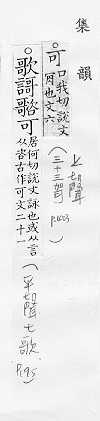 集韻
○可 口我切說文
肎也文六
上聲
(三十三哿)
○歌謌 可 居何切說文詠也或从言
古作可文二十一
(平聲七歌)